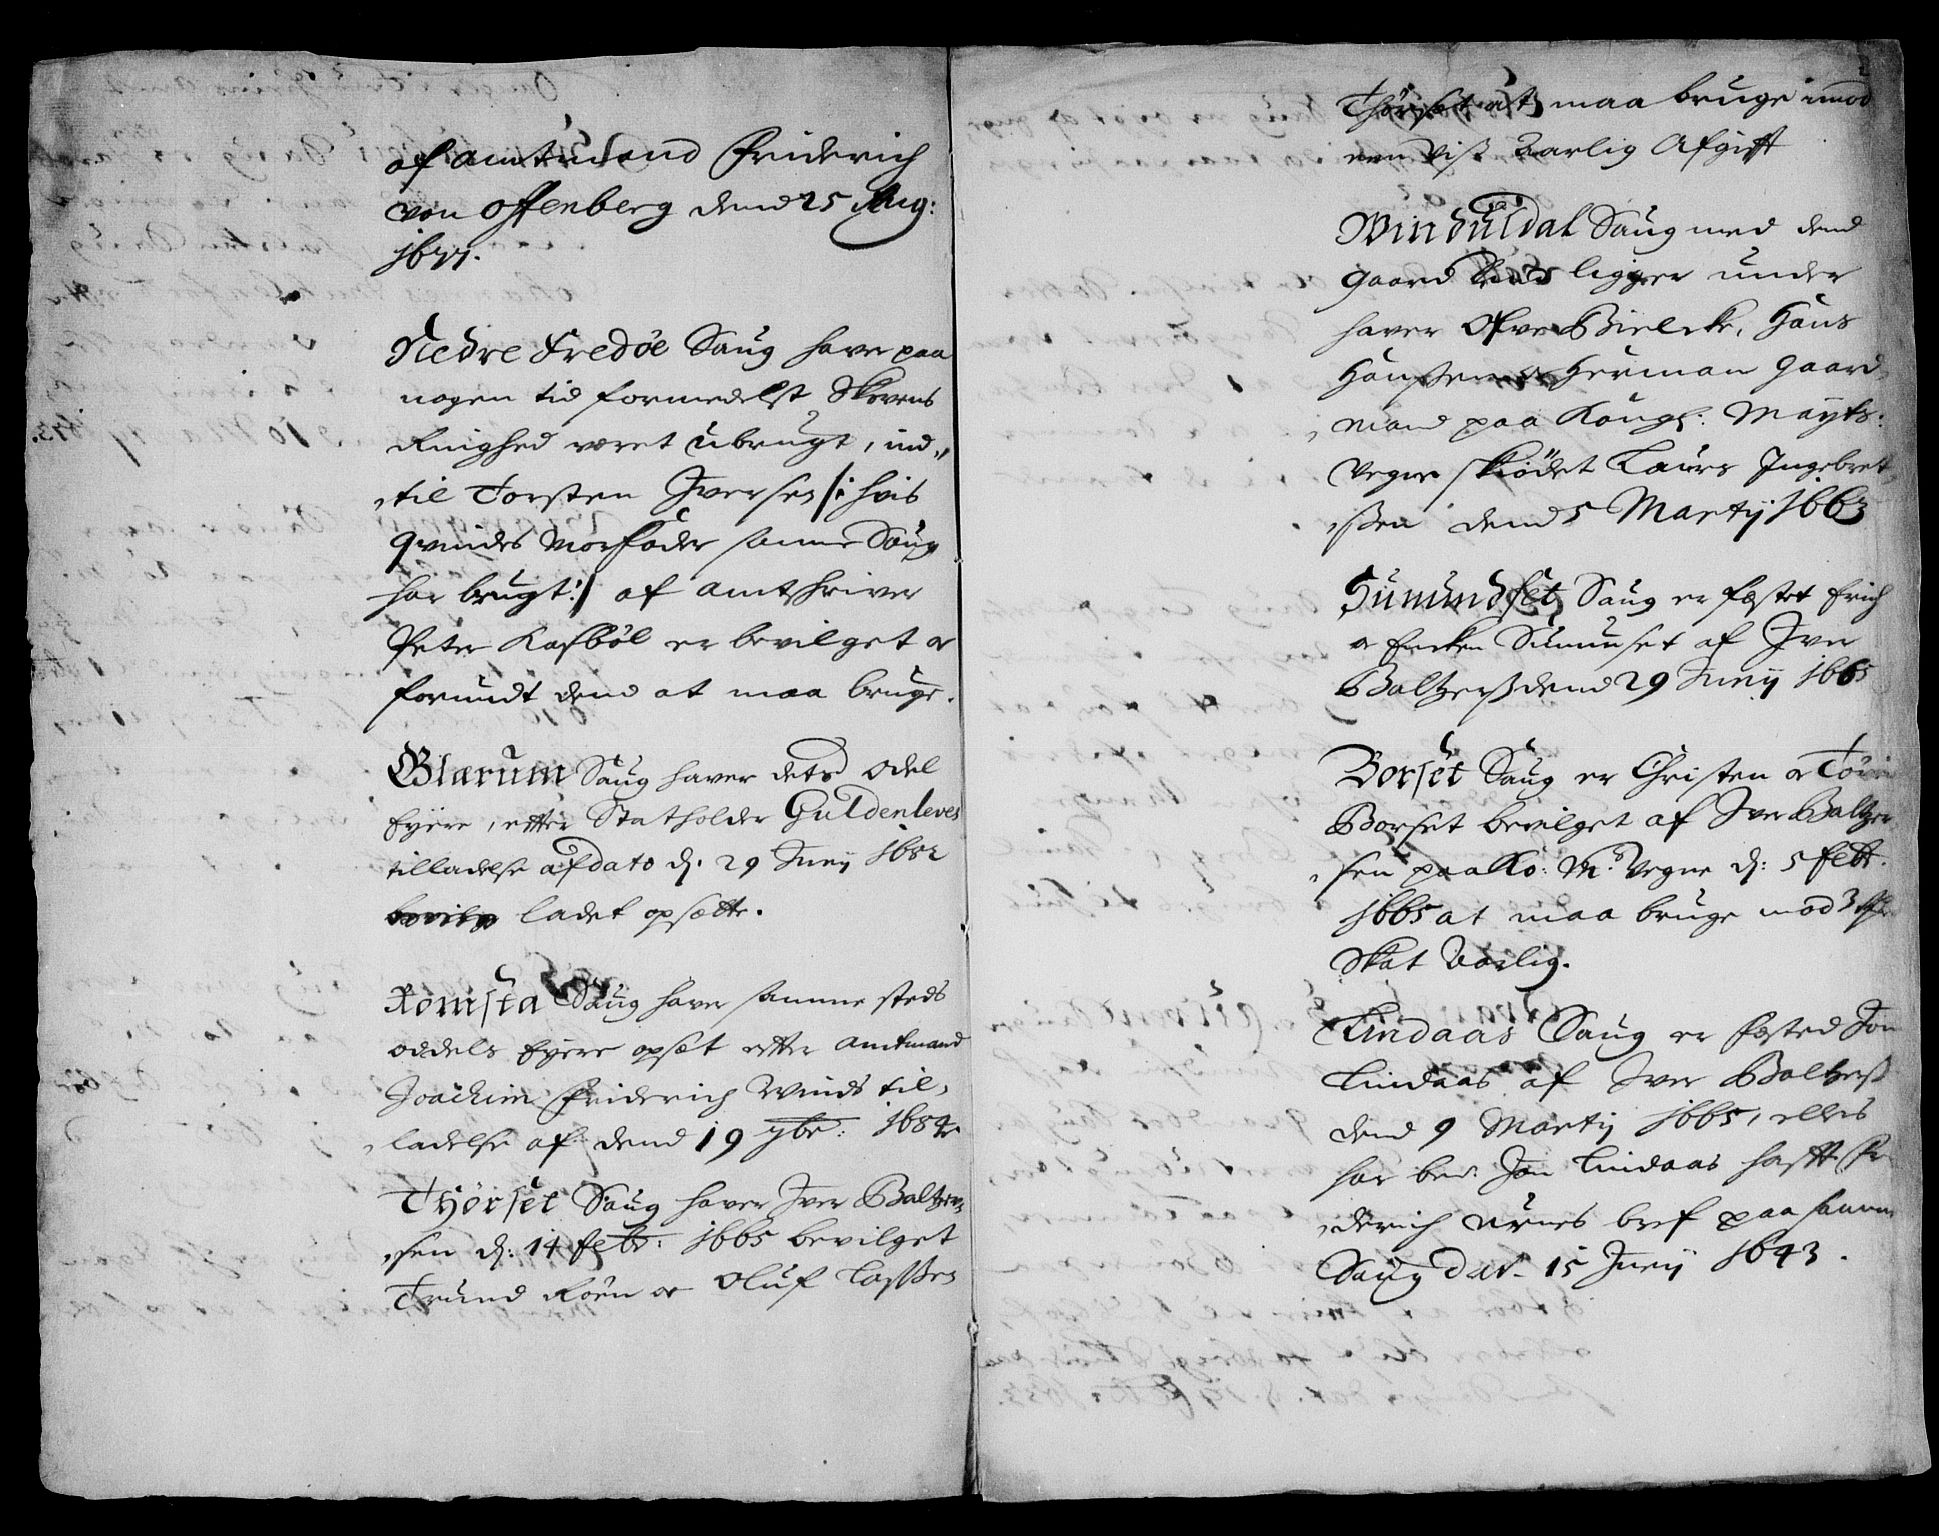 af Amtmand Friderich
von Offenberg dend 25 Aug:
1677.
Nedre Fredøe Saug hafr paa
nogen tid formedelst Skovens
Ringhed været ubrugt, ind„
„til Torsten Iversen /: hvis
qvindes Morfader samme Saug
har brugt :/ af Amtskriver
Peter Kasbøl er bevilget or
forundt dend at maa bruge.
Glærum Saug hafver dets Odel
Eyere, efter Statholder Guldenleves
tilladelse af dato d. 29 Junij 1682
ladet opsætte.
Romsta Saug hafr samme steds
oddels Eyere opsæt efter Amtmand
Joachim Friderich Winds til„
„ladelse af dend 19 9br: 1684
Thorset Saug hafver Iver Baltzer„
„sen d: 14 febr: 1665 bevilget
Trund Roen or Oluf Lassen
Thorset at maa bruge imod
een Viss Aarlig Afgift
Winduldal Saug med dend
gaard ligger under
hafver Ofve Bielcke, Hans
Hanssen or Herman Gaard„
„mand paa Kongl: Mayts:
Vegne skiødet Laurs Ingebret„
„ssen dend 5 Martij 1663
Sunundset Saug er fæstet Erich
or Encken Sununset af Iver
Baltzerss dend 29 Junij 1665
Borset Saug er Christen or
Borset bevilget af Iver Baltzer„
„sen paa Ko: Ms Vegne d: 5 febr.
1665 at maa bruge mod 3
Skat Aarlig.
Lindaas Saug er fæsted Jon
Lindaas af Iver Baltzerss
dend 9 Martij 1665, ellers
har be: Jon Lindaas hafft
„derich Urnes bref paa samme
Saug dat. 15 Junij 1643.